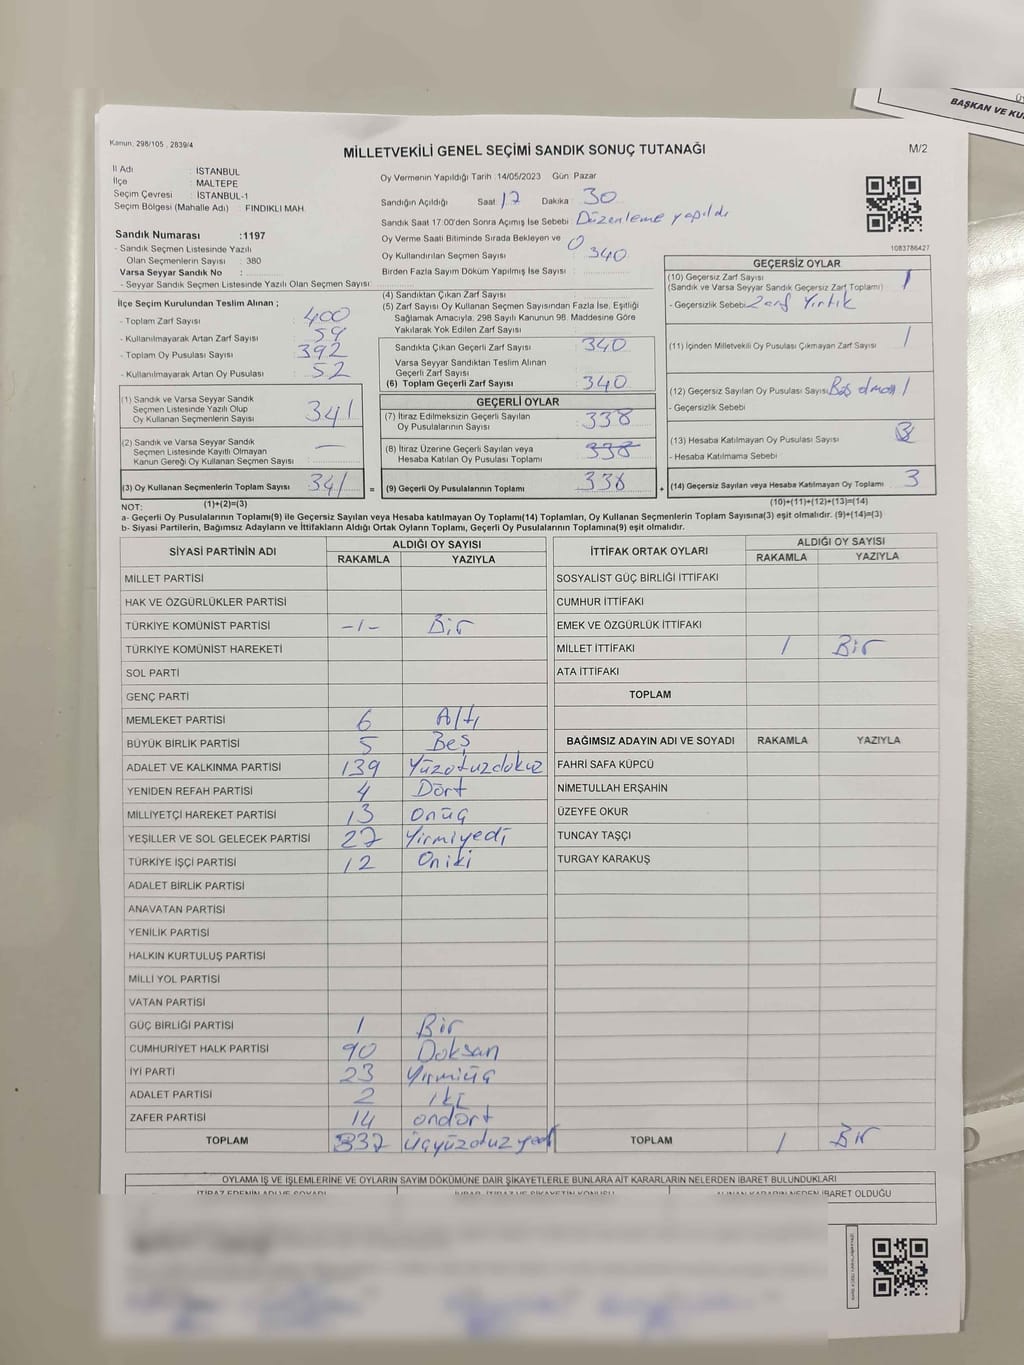 BAŞKAN VE KU
Kanun, 298/105 , 2839/4
MİLLETVEKİLİ GENEL SEÇİMİ SANDIK SONUÇ TUTANAĞI
M/2
İl Adı : İSTANBUL
İlçe : MALTEPE
Seçim Çevresi : İSTANBUL-1
Seçim Bölgesi (Mahalle Adı) : FINDIKLI MAH.
Oy Vermenin Yapıldığı Tarih :14/05/2023 Gün: Pazar
Sandığın Açıldığı Saat: 17 Dakika : 30
Sandık Saat 17:00'den Sonra Açımış İse Sebebi : Düzenleme yapıldı
Oy Verme Saati Bitiminde Sırada Bekleyen ve 0
Oy Kullandırılan Seçmen Sayısı 340
Birden Fazla Sayım Döküm Yapılmış İse Sayısı :
1083786427
Sandık Numarası :1197
- Sandık Seçmen Listesinde Yazılı
Olan Seçmenlerin Sayısı : 380
Varsa Seyyar Sandık No :
- Seyyar Sandık Seçmen Listesinde Yazılı Olan Seçmen Sayısı:
İlçe Seçim Kurulundan Teslim Alınan ;
- Toplam Zarf Sayısı : 400
- Kullanılmayarak Artan Zarf Sayısı : 59
- Toplam Oy Pusulası Sayısı : 392
- Kullanılmayarak Artan Oy Pusulası : 52
(1) Sandık ve Varsa Seyyar Sandık
Seçmen Listesinde Yazılı Olup
Oy Kullanan Seçmenlerin Sayısı : 341
(2) Sandık ve Varsa Seyyar Sandık
Seçmen Listesinde Kayıtlı Olmayan
Kanun Gereği Oy Kullanan Seçmen Sayısı : —
(3) Oy Kullanan Seçmenlerin Toplam Sayısı : 341 =
(1)+(2)=(3)
(4) Sandıktan Çıkan Zarf Sayısı :
(5) Zarf Sayısı Oy Kullanan Seçmen Sayısından Fazla İse, Eşitliği
Sağlamak Amacıyla; 298 Sayılı Kanunun 98. Maddesine Göre
Yakılarak Yok Edilen Zarf Sayısı :
Sandıkta Çıkan Geçerli Zarf Sayısı : 340
Varsa Seyyar Sandıktan Teslim Alınan
Geçerli Zarf Sayısı :
(6) Toplam Geçerli Zarf Sayısı : 340
GEÇERLİ OYLAR
(7) İtiraz Edilmeksizin Geçerli Sayılan
Oy Pusulalarının Sayısı : 338
(8) İtiraz Üzerine Geçerli Sayılan veya
Hesaba Katılan Oy Pusulası Toplamı : 338
(9) Geçerli Oy Pusulalarının Toplamı : 338 +
GEÇERSİZ OYLAR
(10) Geçersiz Zarf Sayısı 1
(Sandık ve Varsa Seyyar Sandık Geçersiz Zarf Toplamı) :
- Geçersizlik Sebebi: Zarf Yırtık
(11) İçinden Milletvekili Oy Pusulası Çıkmayan Zarf Sayısı : 1
(12) Geçersiz Sayılan Oy Pusulası Sayısı : 1
- Geçersizlik Sebebi
(13) Hesaba Katılmayan Oy Pusulası Sayısı :
- Hesaba Katılmama Sebebi
(14) Geçersiz Sayılan veya Hesaba Katılmayan Oy Toplamı : 3
(10)+(11)+(12)+(13)=(14)
NOT:
a- Geçerli Oy Pusulalarının Toplamı(9) ile Geçersiz Sayılan veya Hesaba katılmayan Oy Toplamı(14) Toplamları, Oy Kullanan Seçmenlerin Toplam Sayısına(3) eşit olmalıdır. (9)+(14)=(3)
b- Siyasi Partilerin, Bağımsız Adayların ve İttifakların Aldığı Ortak Oyların Toplamı, Geçerli Oy Pusulalarının Toplamına(9) eşit olmalıdır.
SİYASİ PARTİNİN ADI ALDIĞI OY SAYISI
RAKAMLA YAZIYLA
MİLLET PARTİSİ
HAK VE ÖZGÜRLÜKLER PARTİSİ
TÜRKİYE KOMÜNİST PARTİSİ -1- Bir
TÜRKİYE KOMÜNİST HAREKETİ
SOL PARTİ
GENÇ PARTİ
MEMLEKET PARTİSİ 6 Altı
BÜYÜK BİRLİK PARTİSİ 5 Beş
ADALET VE KALKINMA PARTİSİ 139 Yüzotuzdokuz
YENİDEN REFAH PARTİSİ 4 Dört
MİLLİYETÇİ HAREKET PARTİSİ 13 onüç
YEŞİLLER VE SOL GELECEK PARTİSİ 27 Yirmiyedi
TÜRKİYE İŞÇİ PARTİSİ 12 Oniki
ADALET BİRLİK PARTİSİ
ANAVATAN PARTİSİ
YENİLİK PARTİSİ
HALKIN KURTULUŞ PARTİSİ
MİLLİ YOL PARTİSİ
VATAN PARTİSİ
GÜÇ BİRLİĞİ PARTİSİ 1 Bir
CUMHURİYET HALK PARTİSİ 90 Doksan
İYİ PARTİ 23 Yirmiüç
ADALET PARTİSİ 2 iki
ZAFER PARTİSİ 14 ondört
TOPLAM 337 Üçyüzotuz yedi
İTTİFAK ORTAK OYLARI ALDIĞI OY SAYISI
RAKAMLA YAZIYLA
SOSYALİST GÜÇ BİRLİĞİ İTTİFAKI
CUMHUR İTTİFAKI
EMEK VE ÖZGÜRLÜK İTTİFAKI
MİLLET İTTİFAKI 1 Bir
ATA İTTİFAKI
TOPLAM
BAĞIMSIZ ADAYIN ADI VE SOYADI RAKAMLA YAZIYLA
FAHRİ SAFA KÜPCÜ
NİMETULLAH ERŞAHİN
ÜZEYFE OKUR
TUNCAY TAŞÇI
TURGAY KARAKUŞ
TOPLAM 1 Bir
OYLAMA İŞ VE İŞLEMLERİNE VE OYLARIN SAYIM DÖKÜMÜNE DAİR ŞİKAYETLERLE BUNLARA AİT KARARLARIN NELERDEN İBARET BULUNDUKLARI
İTİRAZ EDENİN ADI VE SOYADI
ALINAN KARARIN NEDEN İBARET OLDUĞU